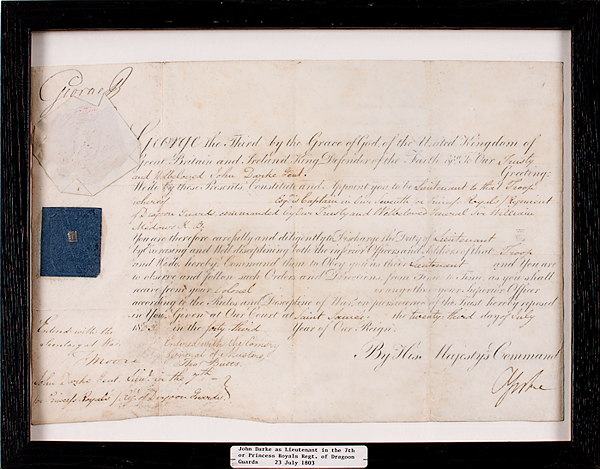 George R
George the Third by the Grace of God, of the United Kingdom of
Great Britain and Ireland King, Defender of the Faith &c. To Our Trusty
and Wellbeloved John Darke Gent. Greeting:
We do by these Presents Constitute and Appoint you to be Lieutenant to that Troop
whereof Esqr. is Captain in Our Seventh or Princess Royal's Regiment
of Dragoon Guards commanded by Our Trusty and Wellbeloved General Sir William
Medows K.B.
You are therefore carefully and diligently to Discharge the Duty of Lieutenant
by Exercising and Well disciplining both the inferior Officers and Soldiers of that Troop
and We do hereby Command them to Obey you as their Lieutenant and You are
to observe and follow such Orders and Directions from Time to Time as you shall
receive from your Colonel or any other your Superior Officer
according to the Rules and Discipline of War, in pursuance of the Trust hereby reposed
in You. Given at Our Court at Saint James's the twenty third day of July
1803 in the forty third Year of Our Reign.
Entered with the
Secretary at War
Moore
Entered with the Comssry
General of Musters
By His Majesty's Command
John Darke Gent. Lieut. in the 7th
or Princess Royals Regt. of Dragoon Guards
John Darke as Lieutenant in the 7th
or Princess Royals Regt. of Dragoon
Guards 23 July 1803